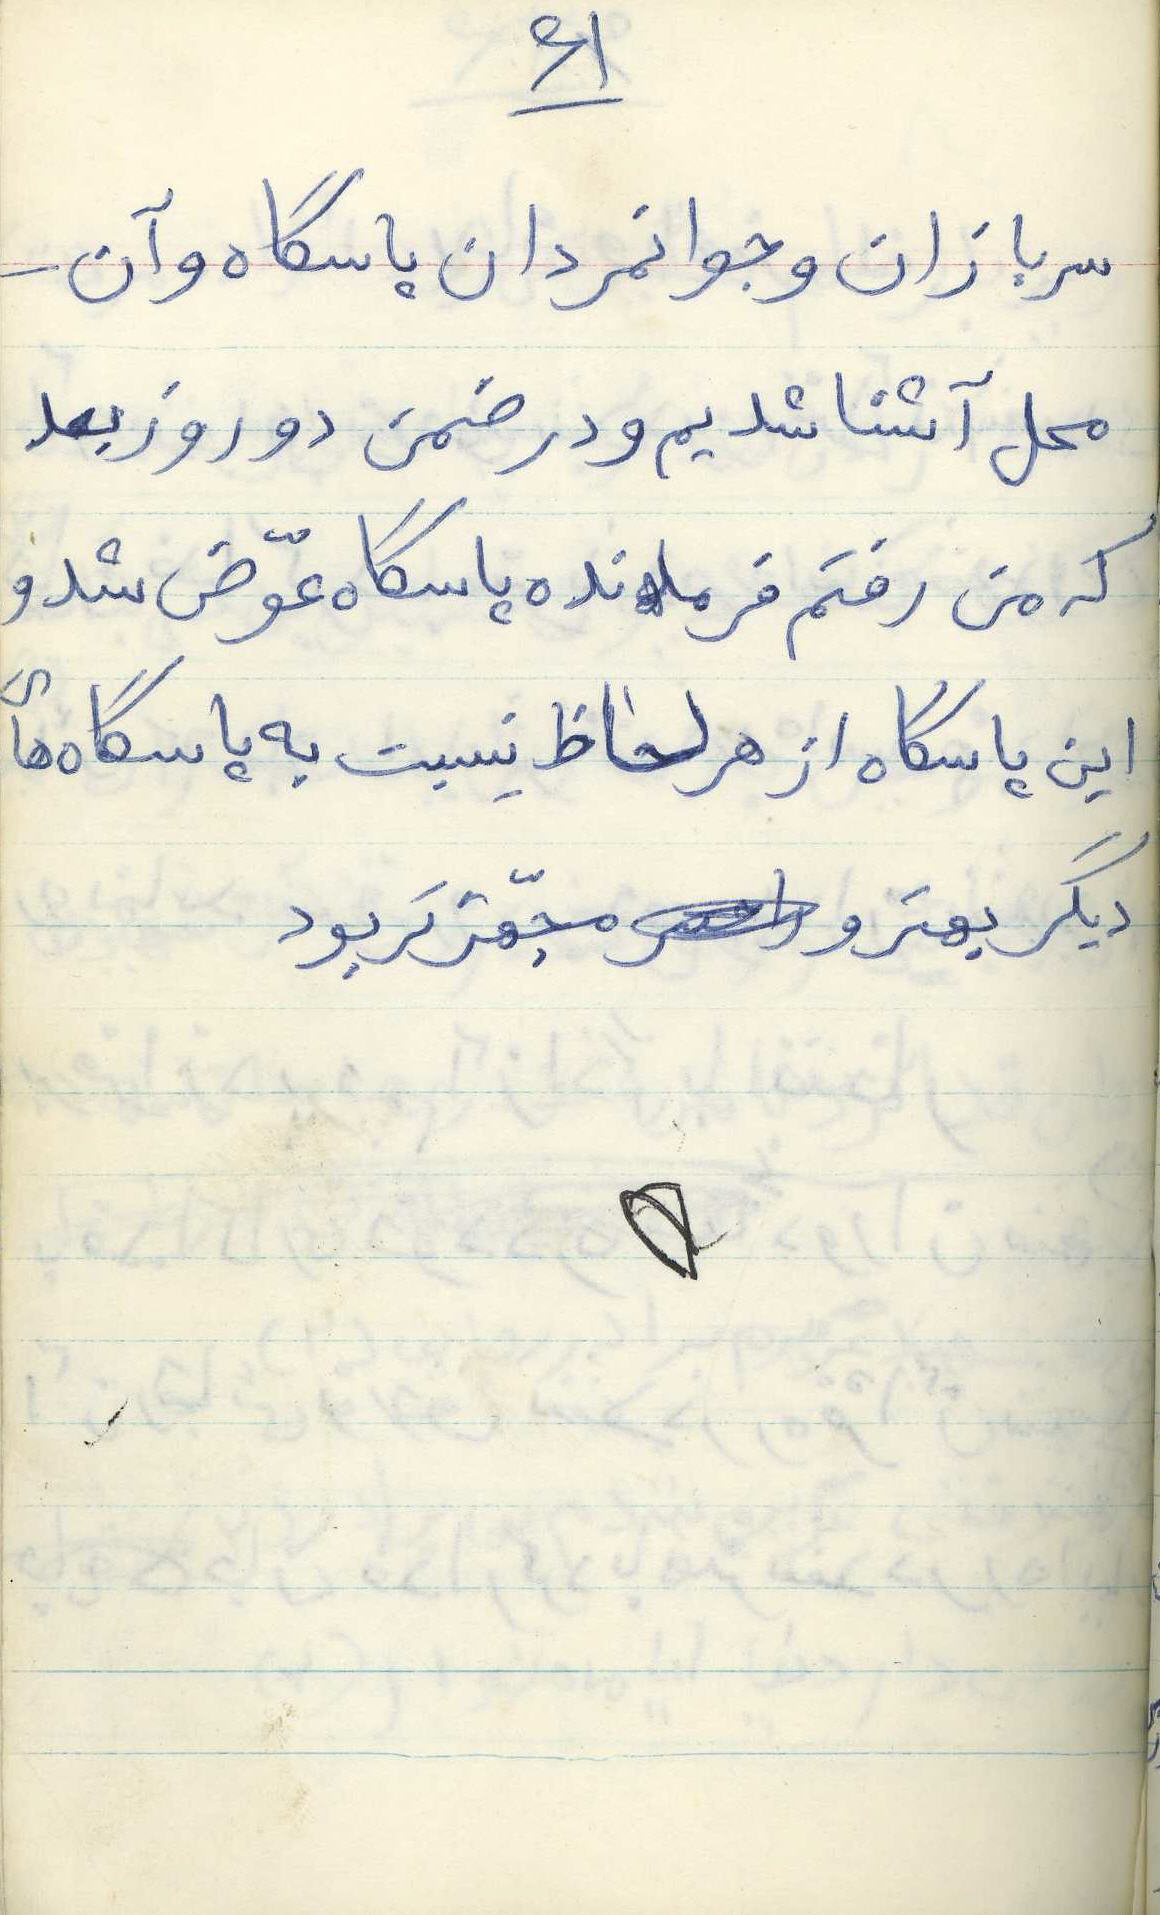 ۶۱
سربازان و جوانمردان پاسگاه و آن -
محل آشنا شدیم و در ضمن دو روز بعد
که من رفتم فرمانده پاسگاه عوّض شد و
این پاسگاه از هر لحاظ نِسبت به پاسگاه هاَی
دیگر بهتر و مجّهزتر بود